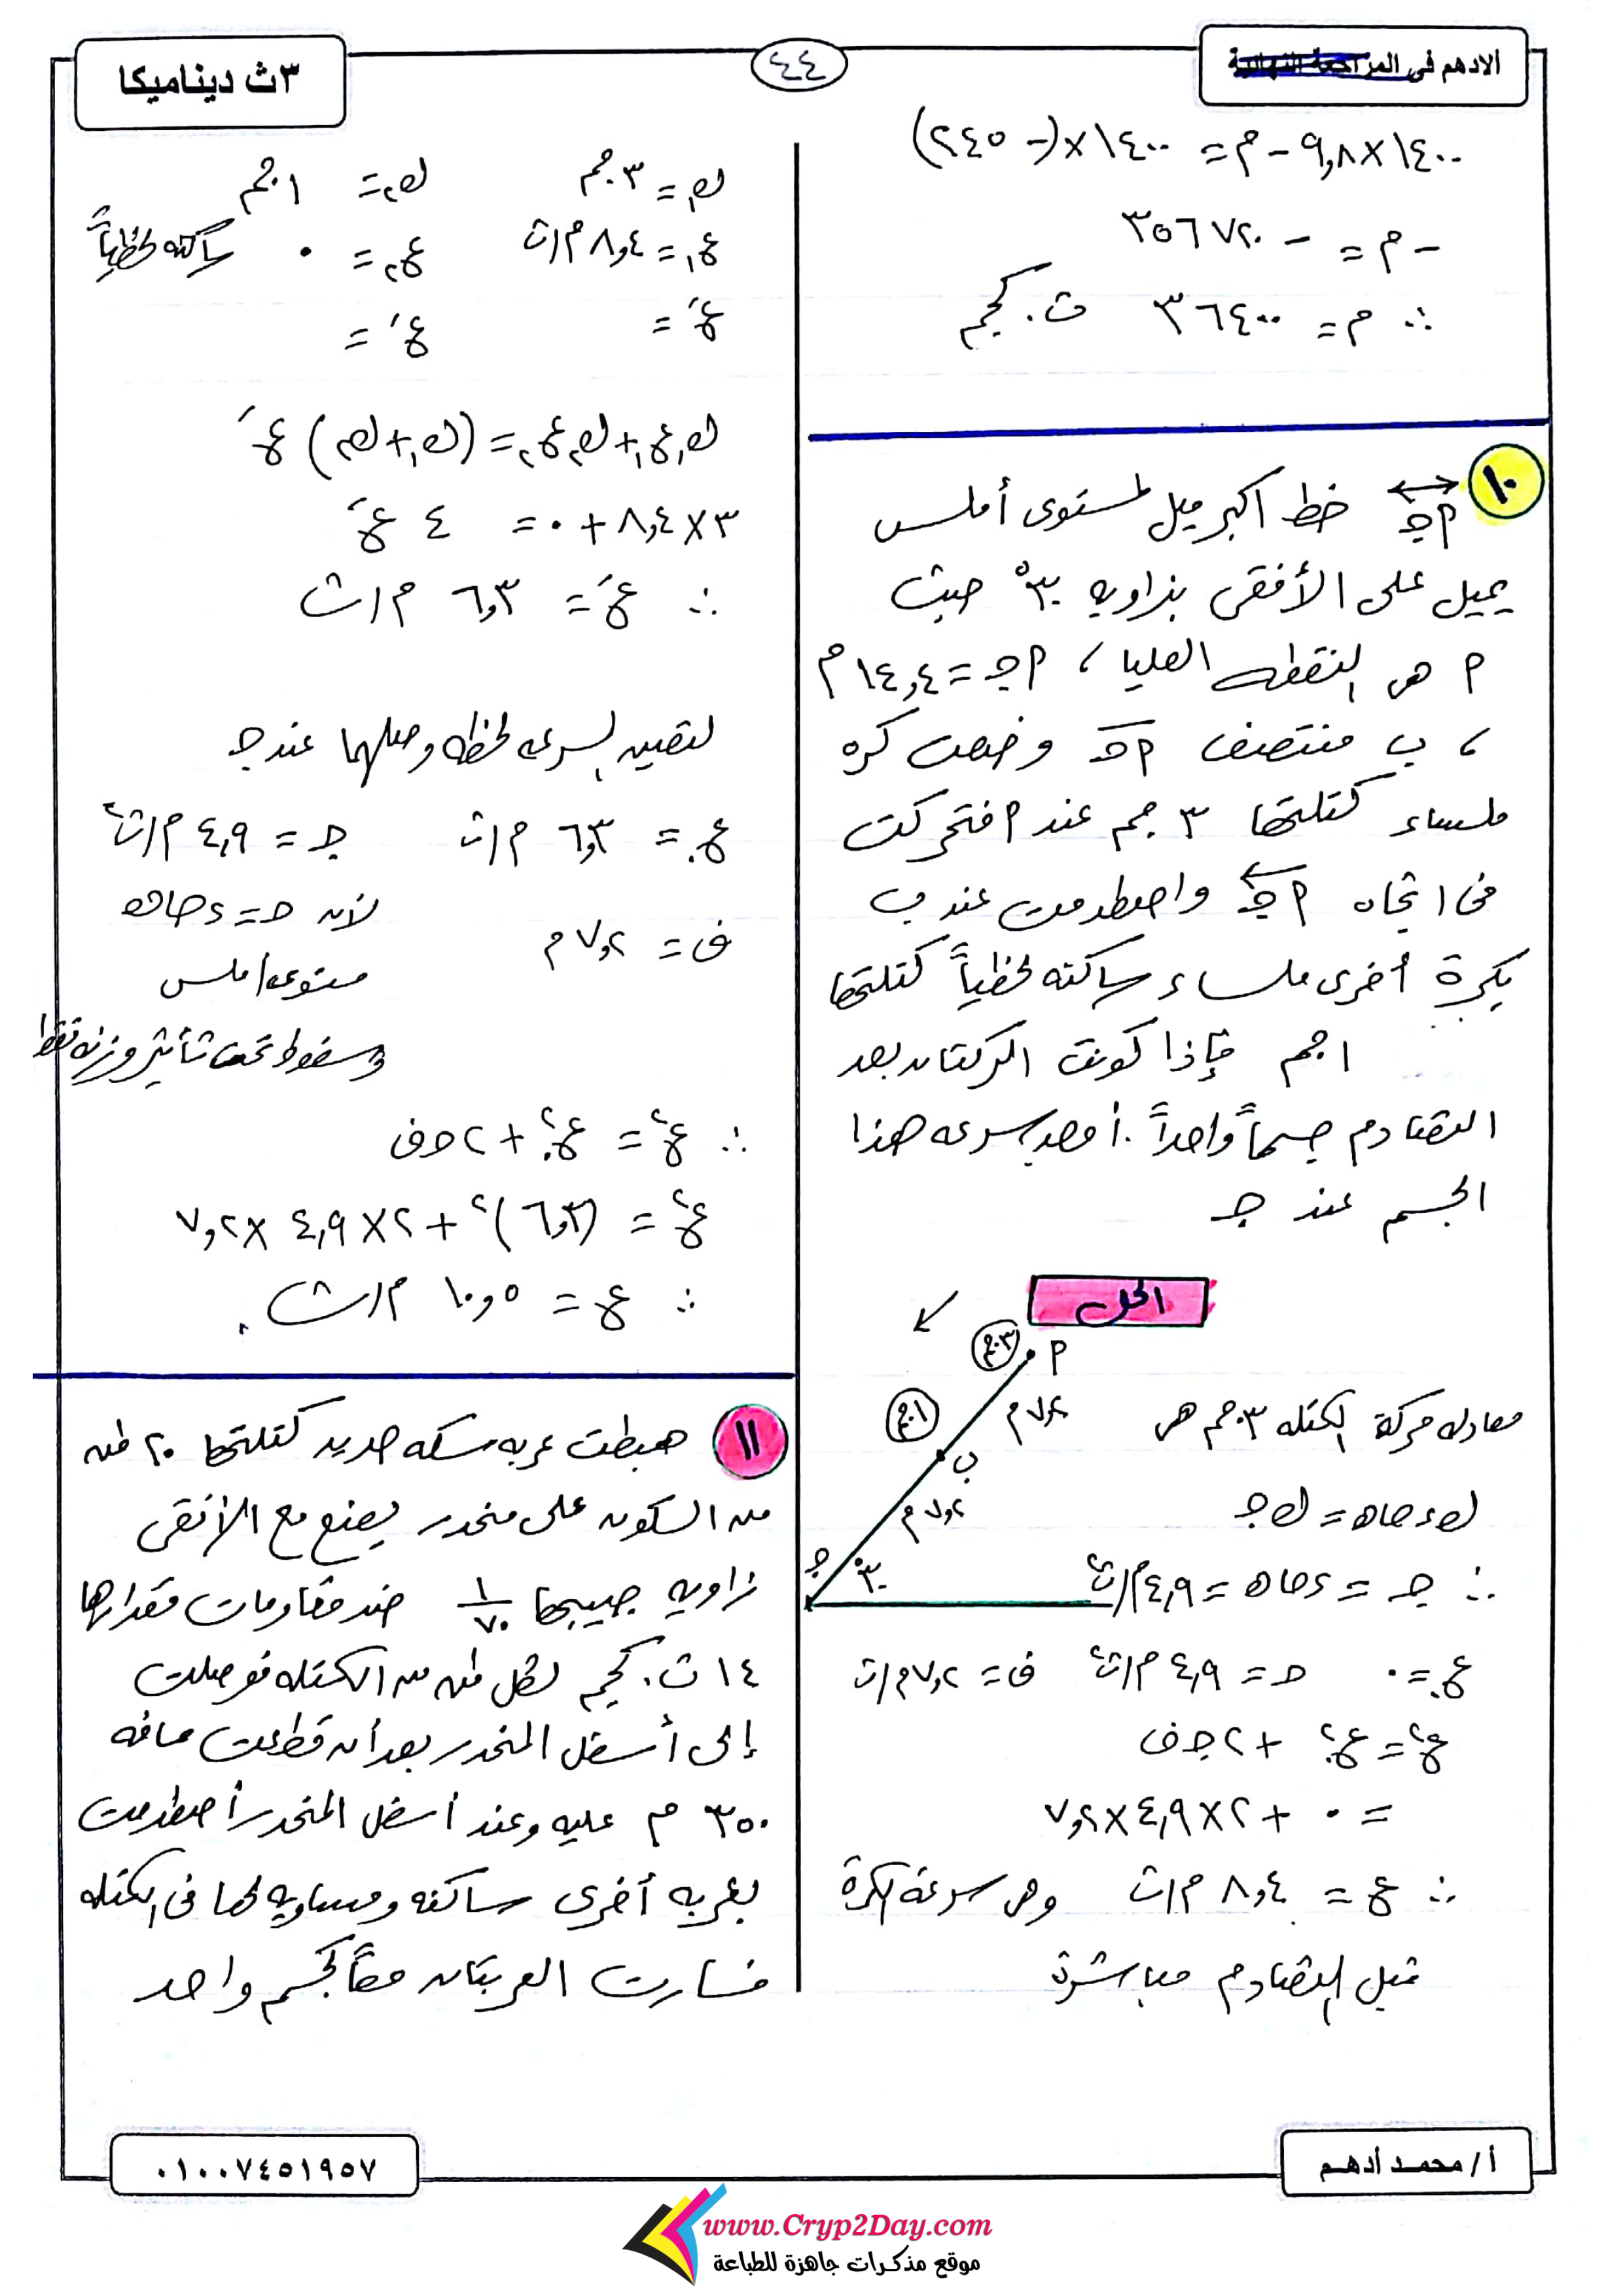 الادهم فى المراجعة النهائية
٤٤
٣ث ديناميكا
١٤٠٠ × ٩,٨ - م = ١٤٠٠ × (- ٢٤٥)
- م = - ٣٥٦٧٢٠
∴ م = ٣٦٤٠٠ ث. كجم
١٠ أجـ خط اكبر ميل لمستوى أملس
يميل على الأفقى بزاويه ٣٠° حيث
أ هى النقطه العليا ، أجـ = ١٤,٤ م
، ب منتصف أجـ وضعت كره
ملساء كتلتها ٣ جم عند أ فتحركت
فى اتجاه أجـ واصطدمت عند ب
بكرة أخرى ملساء ساكنه لحظياً كتلتها
١ جم فإذا كونت الكرتان بعد
التصادم جسماً واحداً . أوجد سرعه هذا
الجسم عند جـ
الحل
٣جم
أ
١جم
٧,٢ م
ب
٧,٢ م
جـ
٣٠°
معادله حركة الكتله ٣جم هى
ك ء حاهـ = ك جـ
∴ جـ = ء حاهـ = ٤,٩ م/ث٢
ع. = ٠ حـ = ٤,٩ م/ث٢ ف = ٧,٢ م/ث
ع٢ = ع.٢ + ٢ جـ ف
= ٠ + ٢ × ٤,٩ × ٧,٢
∴ ع = ٨,٤ م/ث وهى سرعة الكرة
قبل التصادم مباشرة
ك١ = ٣ جم ك٢ = ١ جم
ع١ = ٨,٤ م/ث ع٢ = ٠ ساكنه لحظياً
ع١َ = ع٢َ =
ك١ع١ + ك٢ع٢ = (ك١ + ك٢) عَ
٣ × ٨,٤ + ٠ = ٤ عَ
∴ عَ = ٦,٣ م/ث
لتعيين السرعه لحظه وصلهما عند جـ
ع. = ٦,٣ م/ث جـ = ٤,٩ م/ث٢
لأن حـ = ء حاهـ
ف = ٧,٢ م
مستوى أملس
وسقوط تحت تأثير وزنه فقط
∴ ع٢ = ع.٢ + ٢ حـ ف
ع٢ = (٦,٣)٢ + ٢ × ٤,٩ × ٧,٢
∴ ع = ١٠,٥ م/ث
١١ هبطت عربه سكه حديد كتلتها ٢٠ طن
من السكون على منحدر يصنع مع الأفقى
زاويه جيبها ١/٧٠ ضد مقاومات مقدارها
١٤ ث. كجم لكل طن من الكتله فوصلت
إلى أسفل المنحدر بعد أن قطعت مسافه
٣٥٠ م عليه وعند أسفل المنحدر أصطدمت
بعربه أخرى ساكنه ومساويه لها فى الكتله
فسارت العربتان معاً كجسم واحد
أ/ محمد أدهم
٠١٠٠٧٤٥١٩٥٧
www.Cryp2Day.com
موقع مذكرات جاهزة للطباعة